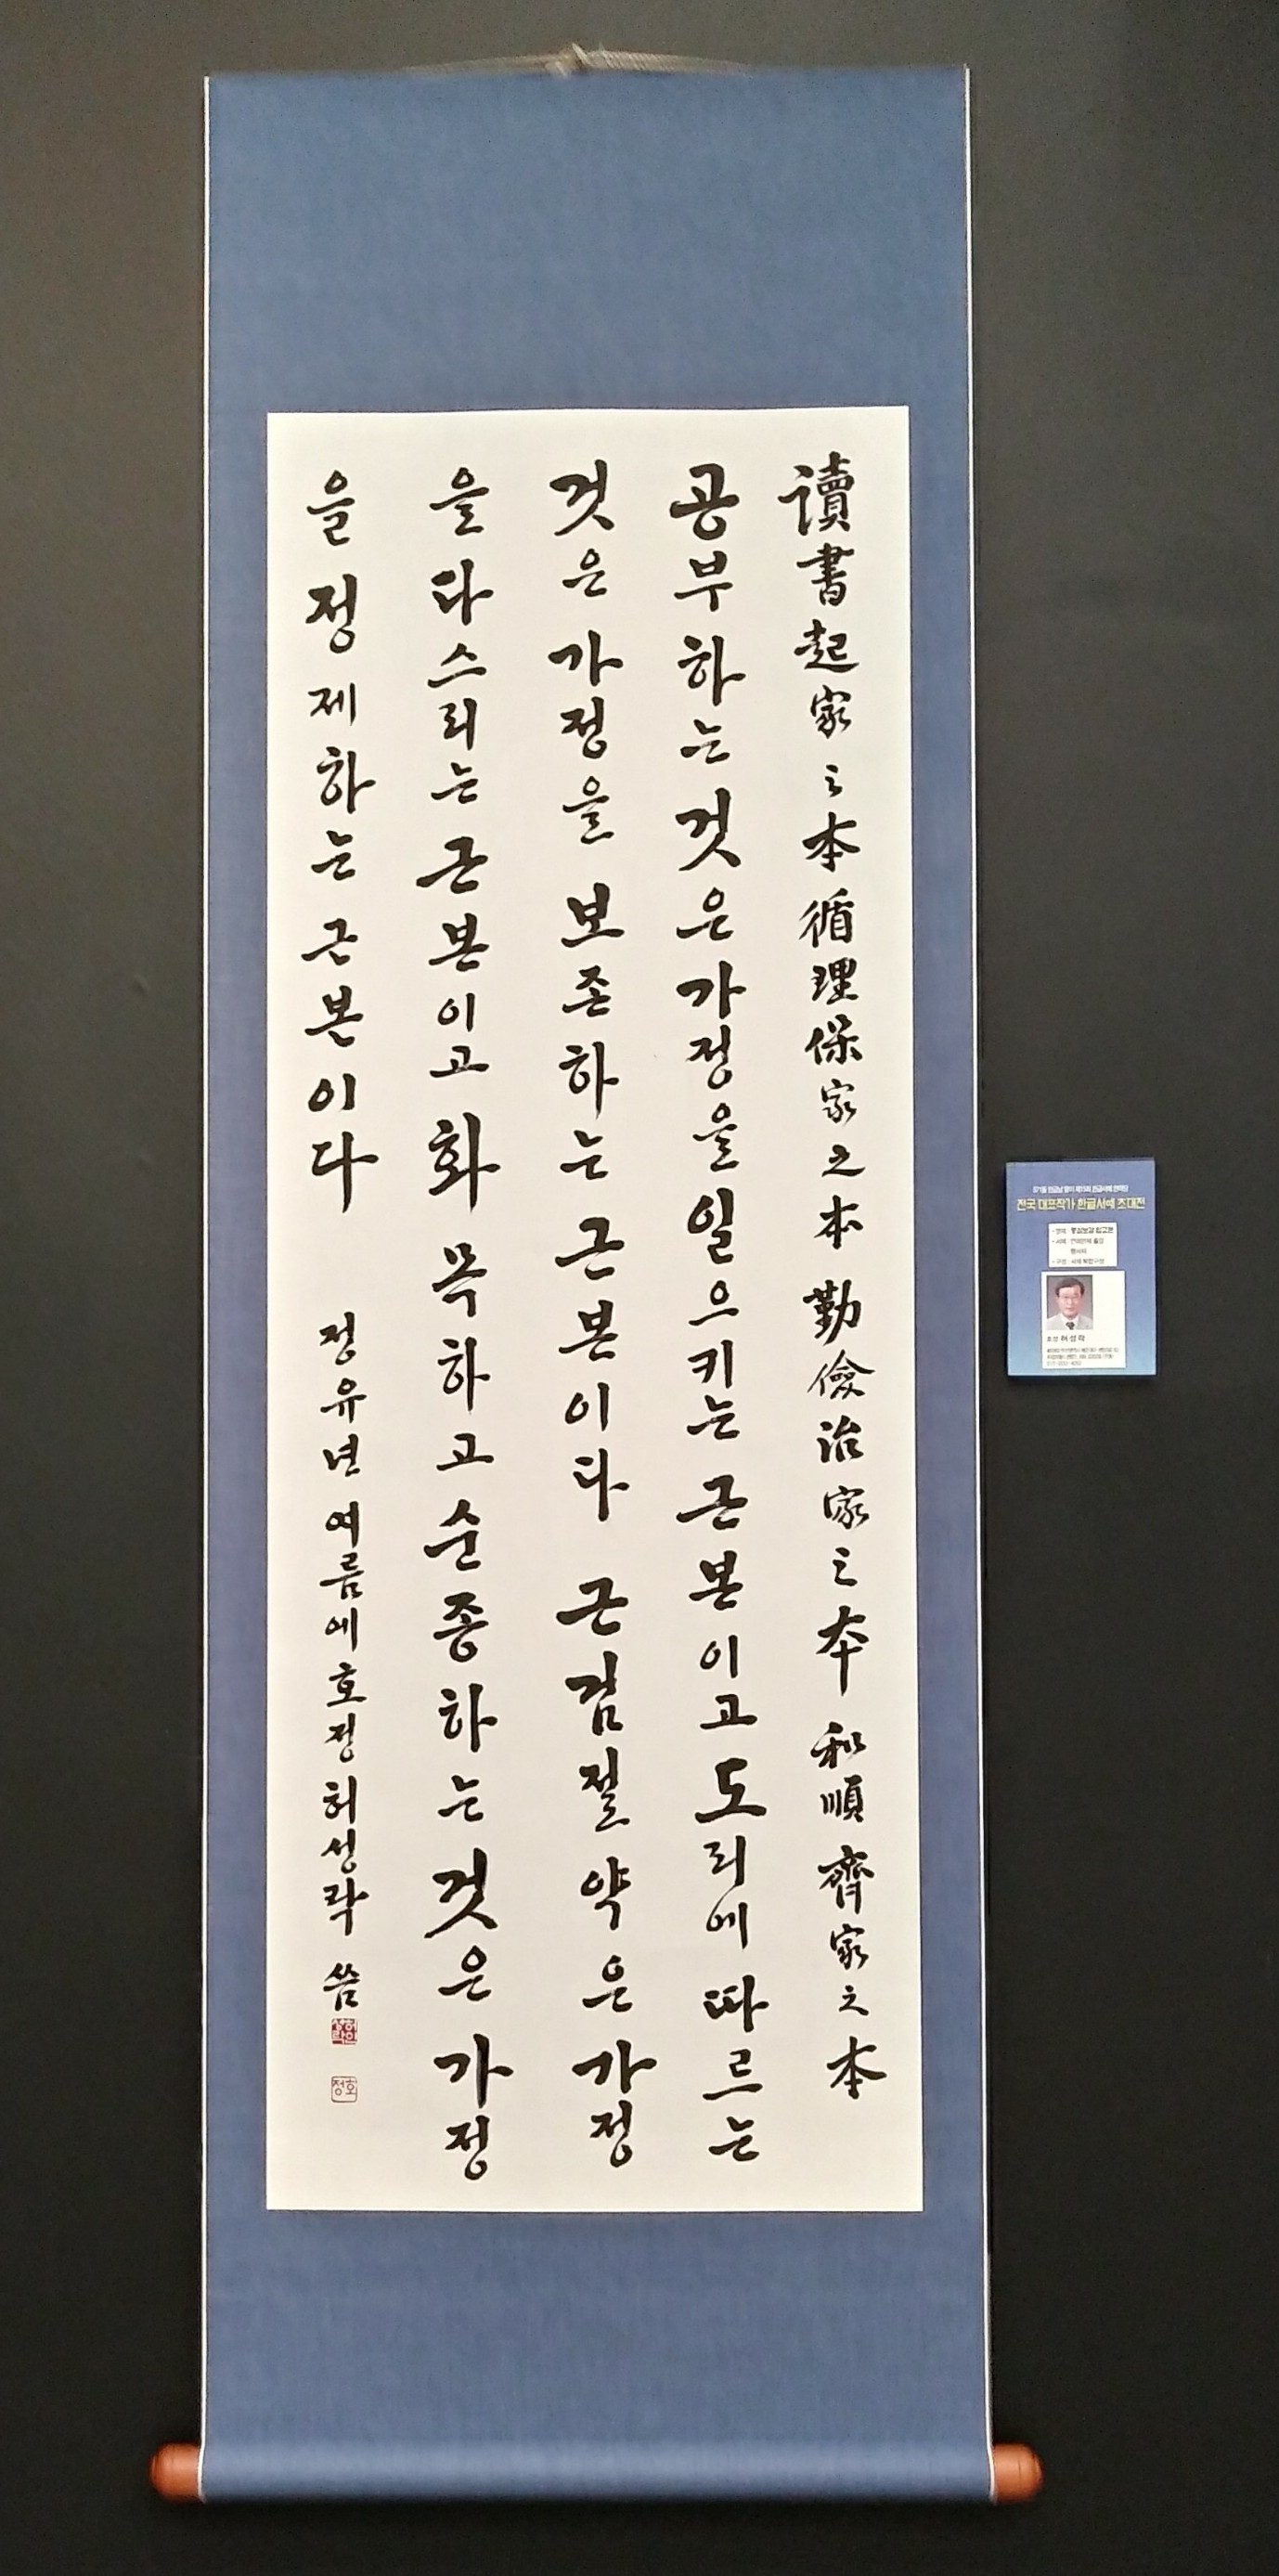 讀書起家之本循理保家之本勤儉治家之本和順齊家之本
공부하는것은가정을일으키는근본이고도리에따르는
것은가정을보존하는근본이다근검절약은가정
을다스리는근본이고화목하고순종하는것은가정
을정제하는근본이다 정유년여름에호정허성락씀
전국 대표작가 한글서예 초대전
허성락